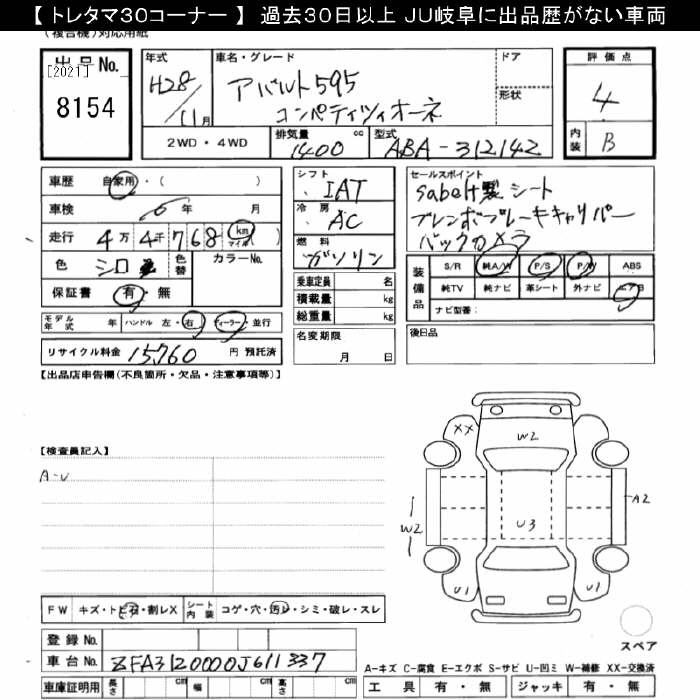 【トレタマ30コーナー】 過去30日以上 JU岐阜に出品歴がない車両
(複合機)対応用紙
出品No. [2021] 8154
年式 H28/11月
車名・グレード アバルト595 コンペティツィオーネ
ドア
形状
評価点 4
内装 B
2WD・4WD
排気量 1400 cc
型式 ABA-312142
車歴 自家用・( )
車検 6年 月
走行 4万4千768 km マイル( )
色 シロ
色替
カラーNo.
保証書 有・無
モデル年式 年
ハンドル 左・右
ディーラー・並行
リサイクル料金 15,760 円 預託済
シフト IAT
冷房 AC
燃料 ガソリン
乗車定員 名
積載量 kg
総重量 kg
名変期限 月 日
セールスポイント
sabelt製シート
ブレンボブレーキキャリパー
バックカメラ
装備品
S/R 純A/W P/S P/W ABS
純TV 純ナビ 革シート 外ナビ エアB
ナビ型番:
後日品
【出品店申告欄(不良箇所・欠品・注意事項等)】
【検査員記入】
A-U
XX
W2
W2
A2
U3
U1
U1
スペア
FW キズ・トビ石・割レX
シート内装 コゲ・穴・汚レ・シミ・破レ・スレ
登録No.
車台No. ZFA3120000J611337
車庫証明用 長さ cm 幅 cm 高さ cm
A-キズ C-腐食 E-エクボ S-サビ U-凹ミ W-補修 XX-交換済
工具 有・無 ジャッキ 有・無